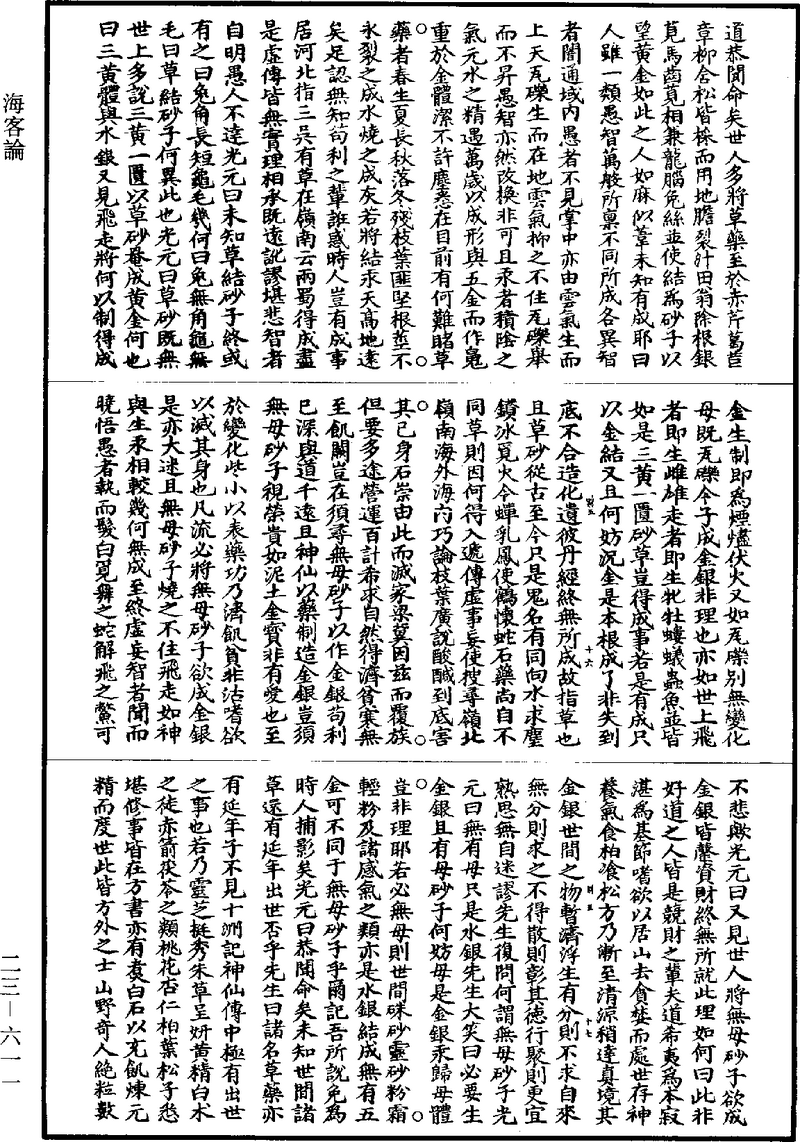 道恭聞命矣世人多將草藥至於赤芹葛苣
章柳舍松皆採而用地膽裂汁田翁除根銀
莧馬齒莧相兼龍腦兔絲並使結為砂子以
望黃金如此之人如麻似葦未知有成耶曰
人雖一類愚智萬般所稟不同所成各異智
者闇通域內愚者不見掌中亦由雲氣生而
上天瓦礫生而在地雲氣抑之不住瓦礫舉
而不昇愚智亦然改換非可且汞者積陰之
氣元水之精遇萬歲以成形與五金而作鬼
重於金體潔不許塵惹在目前有何難睹草
藥者春生夏長秋落冬殘枝葉匪堅根莖不
永裂之成水燒之成灰若將結汞天高地遠
矣足認無知苟利之輩誑惑時人豈有成事
居河北指三吳有草在嶺南云兩蜀得成盡
是虛傳皆無實理相承既遠訛謬堪悲智者
自明愚人不達光元曰未知草結砂子終或
有之曰兔角長短龜毛幾何曰兔無角龜無
毛曰草結砂子何異此也光元曰草砂既無
世上多說三黃一匱以草砂養成黃金何也
曰三黃體與水銀又見飛走將何以制得成
金生制即為煙爐伏火又如瓦礫別無變化
母既瓦礫令子成金銀非理也亦如世上飛
者即生雌雄走者即生牝牡螻蟻蟲魚並皆
如是三黃一匱砂草豈得成事若是有成只
以金結又且何妨況金是本根成了非失到
底不合造化遺彼丹經終無所成故指草也
且草砂從古至今只是鬼名有同向水求塵
鑽冰覓火令蟬乳鳳使鶴懷蛇石藥尚自不
同草則因何得入遞傳虛事妄使搜尋嶺北
嶺南海外海內巧論枝葉廣說酸醎到底害
其己身石崇由此而滅家梁冀因茲而覆族
但要多途營運百計希求自然得濟貧寒無
至飢闕豈在須尋無母砂子以作金銀苟利
已深與道千遠且神仙以藥制造金銀豈須
無母砂子視榮貴如泥土金寶非有愛也至
於變化些小以表藥功乃濟飢貧非沽嗜欲
以滅其身也凡流必將無母砂子欲成金銀
是亦大迷且無母砂子燒之不住飛走如神
與生汞相較幾何無成至終虛妄智者聞而
曉悟愚者執而髮白覓舞之蛇解飛之鱉可
不悲歟光元曰又見世人將無母砂子欲成
金銀皆罄資財終無所就此理如何曰此非
好道之人皆是競財之輩夫道希夷為本寂
湛為基節嗜欲以居山去貪婪而處世存神
養氣食柏飡松方乃漸至清涼稍達真境其
金銀世間之物暫濟浮生有分則不求自來
無分則求之不得散則彰其德行聚則更宜
熟思無自迷謬先生復問何謂無母砂子光
元曰無有母只是水銀先生大笑曰必要生
金銀且有母砂子何妨母是金銀汞歸母體
豈非理耶若必無母則世間硃砂靈砂粉霜
輕粉及諸感氣之類亦是水銀結成無有五
金可不同于無母砂子乎爾記吾所說免為
時人捕影矣光元曰恭聞命矣未知世間諸
草還有延年出世否乎先生曰諸名草藥亦
有延年子不見十洲記神仙傳中極有出世
之事也若乃靈芝挺秀朱草呈妍黃精白术
之徒赤箭茯苓之類桃花杏仁柏葉松子悉
堪修事皆在方書亦有煑白石以充飢煉元
精而度世此皆方外之士山野奇人絕粒數
海客論
二三－六一一